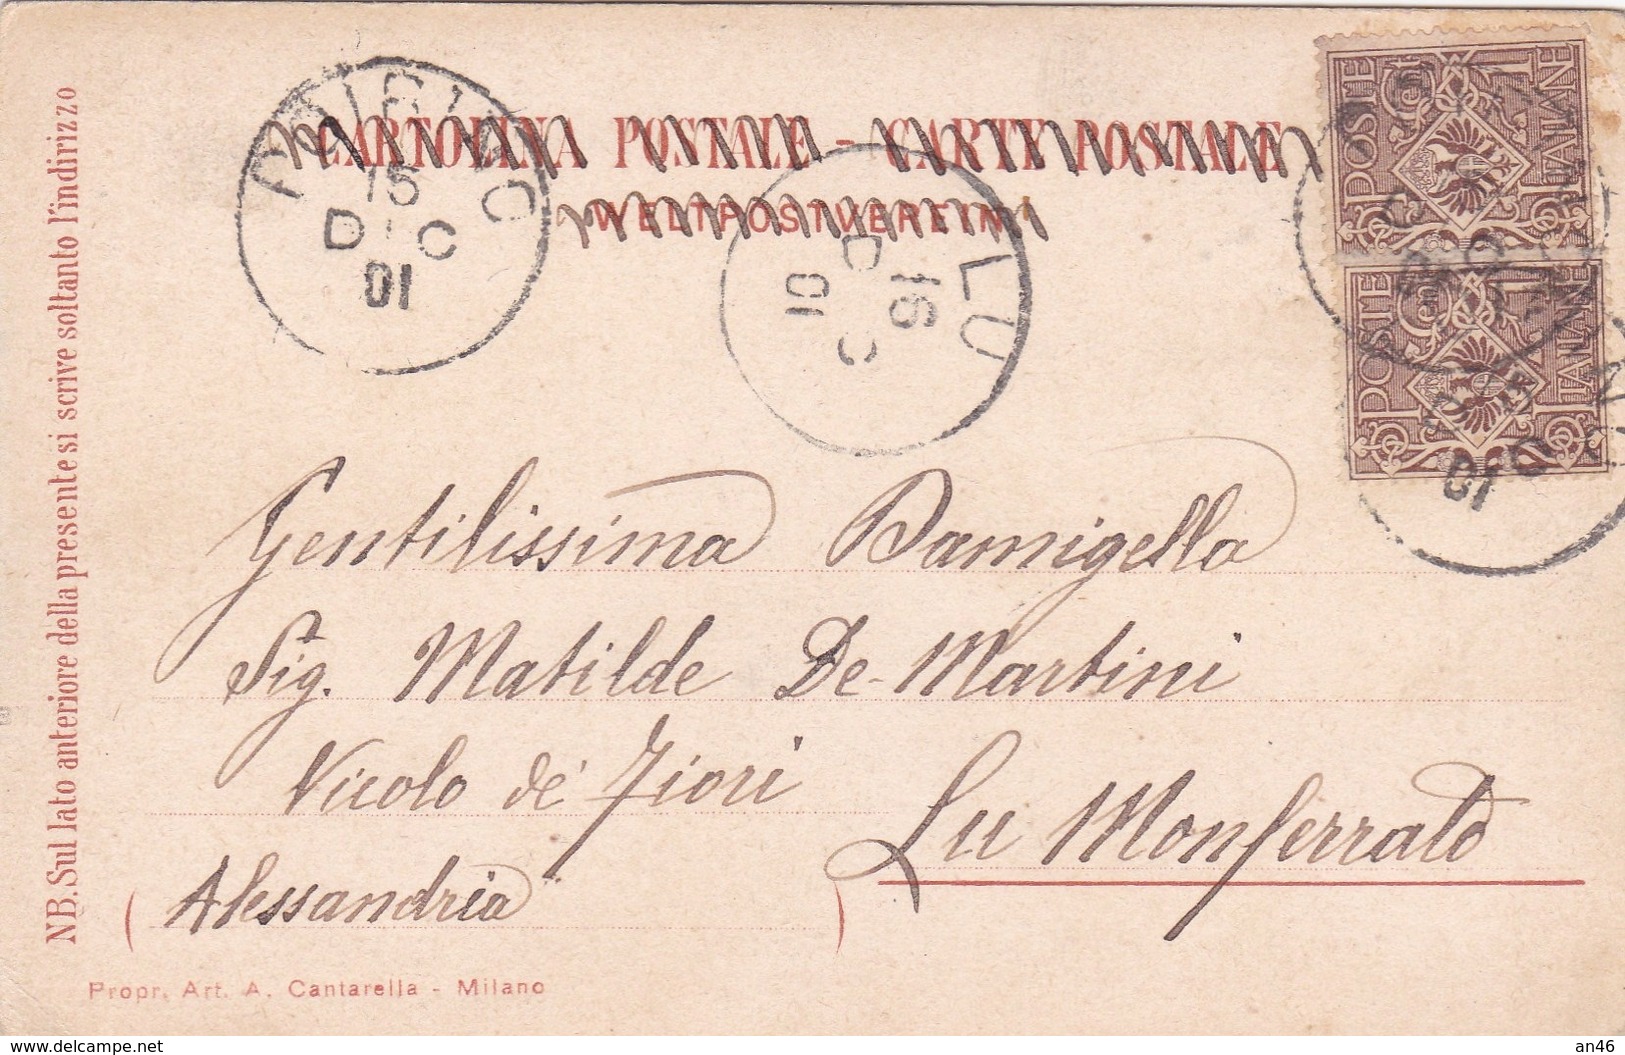 CARTOLINA POSTALE - CARTE POSTALE
WELTPOSTVEREIN
15
DIC
01
LU
16
DIC
01
POSTE ITALIANE
Cent 1
POSTE ITALIANE
Cent 1
DIC
01
Gentilissima Damigella
Sig. Matilde De-Martini
Vicolo de' Fiori
Lu Monferrato
(Alessandria)
NB. Sul lato anteriore della presente si scrive soltanto l'indirizzo
Propr. Art. A. Cantarella - Milano
delcampe.net
an46